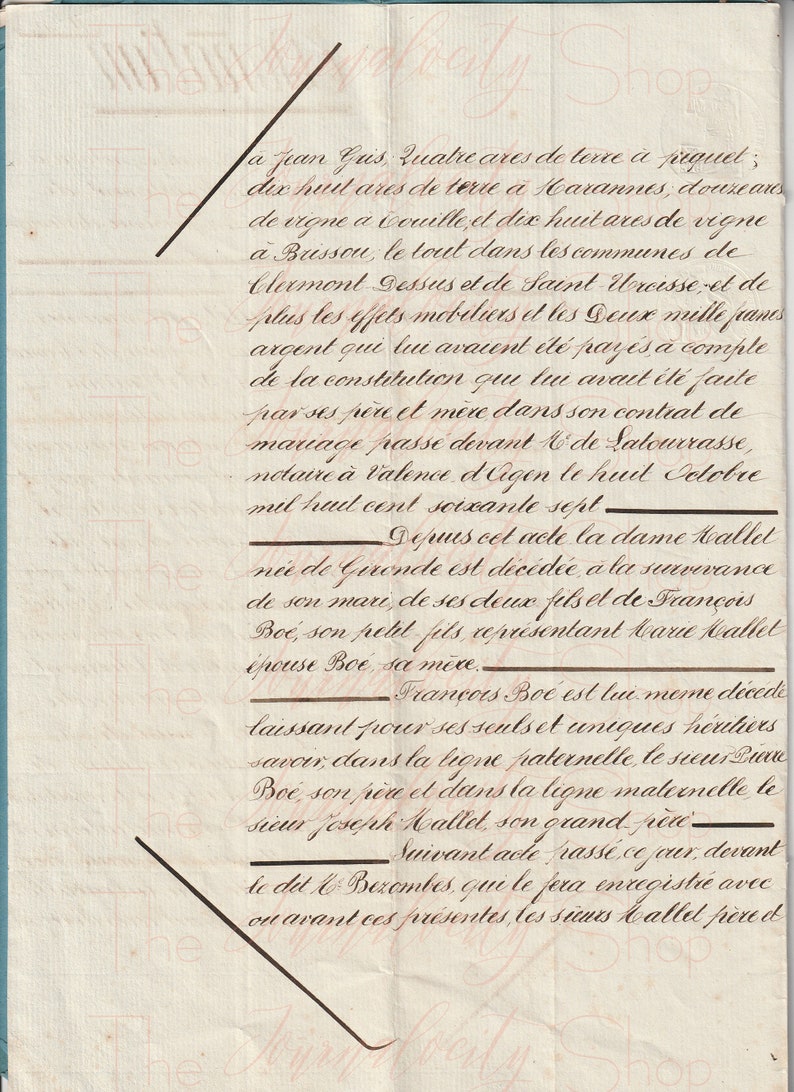 à Jean Gris, Quatre ares de terre à piquet;
dix huit ares de terre à Marannes, douze ares
de vigne à Couille, et dix huit ares de vigne
à Brissou; le tout dans les communes de
Clermont Dessus et de Saint Urcisse, et de
plus les effets mobiliers et les Deux mille francs
argent qui lui avaient été payés à compte
de la constitution qui lui avait été faite
par ses père et mère dans son contrat de
mariage passé devant Me de Latourrasse,
notaire à Valence d'Agen le huit Octobre
mil huit cent soixante sept
Depuis cet acte la dame Mallet
née de Gironde est décédée, à la survivance
de son mari, de ses deux fils et de François
Boé, son petit-fils, représentant Marie Mallet
épouse Boé, sa mère.
François Boé est lui-meme décédé
laissant pour ses seuls et uniques héritiers
savoir, dans la ligne paternelle, le sieur Pierre
Boé, son père et dans la ligne maternelle, le
sieur Joseph Mallet, son grand-père
Suivant acte passé, ce jour, devant
le dit Me Bezombes, qui le fera enregistré avec
ou avant ces présentes, les sieurs Mallet père et
The Joyvalocity Shop